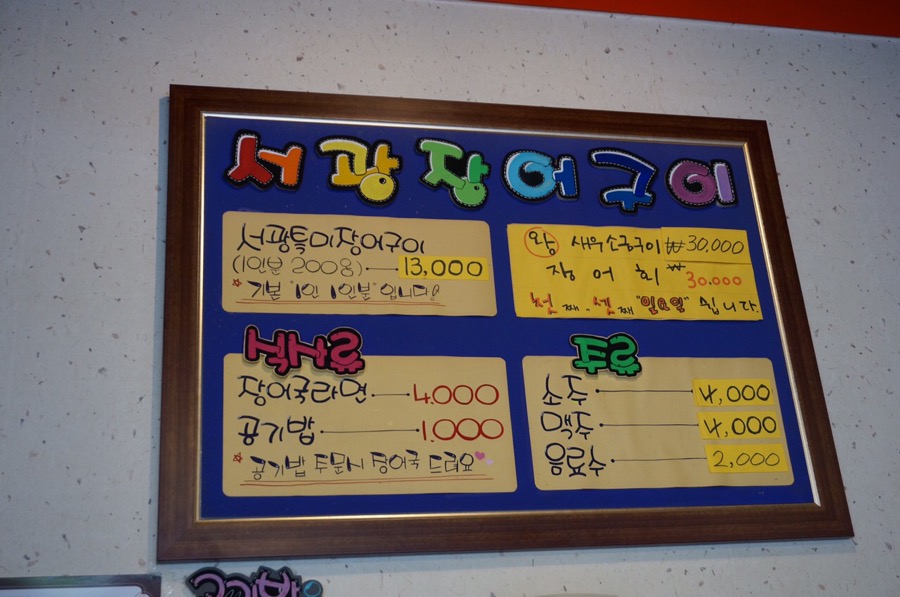 서광장어구이
서광특미장어구이
(1인분 200g) 13,000
기본 "1인 1인분"입니다!
왕 새우소금구이 ₩30,000
장어회 ₩30.000
첫째.셋째 "일요일" 쉽니다.
식사류
장어국라면 4.000
공기밥 1.000
공기밥 주문시 장어국 드려요
주류
소주 4,000
맥주 4,000
음료수 2,000